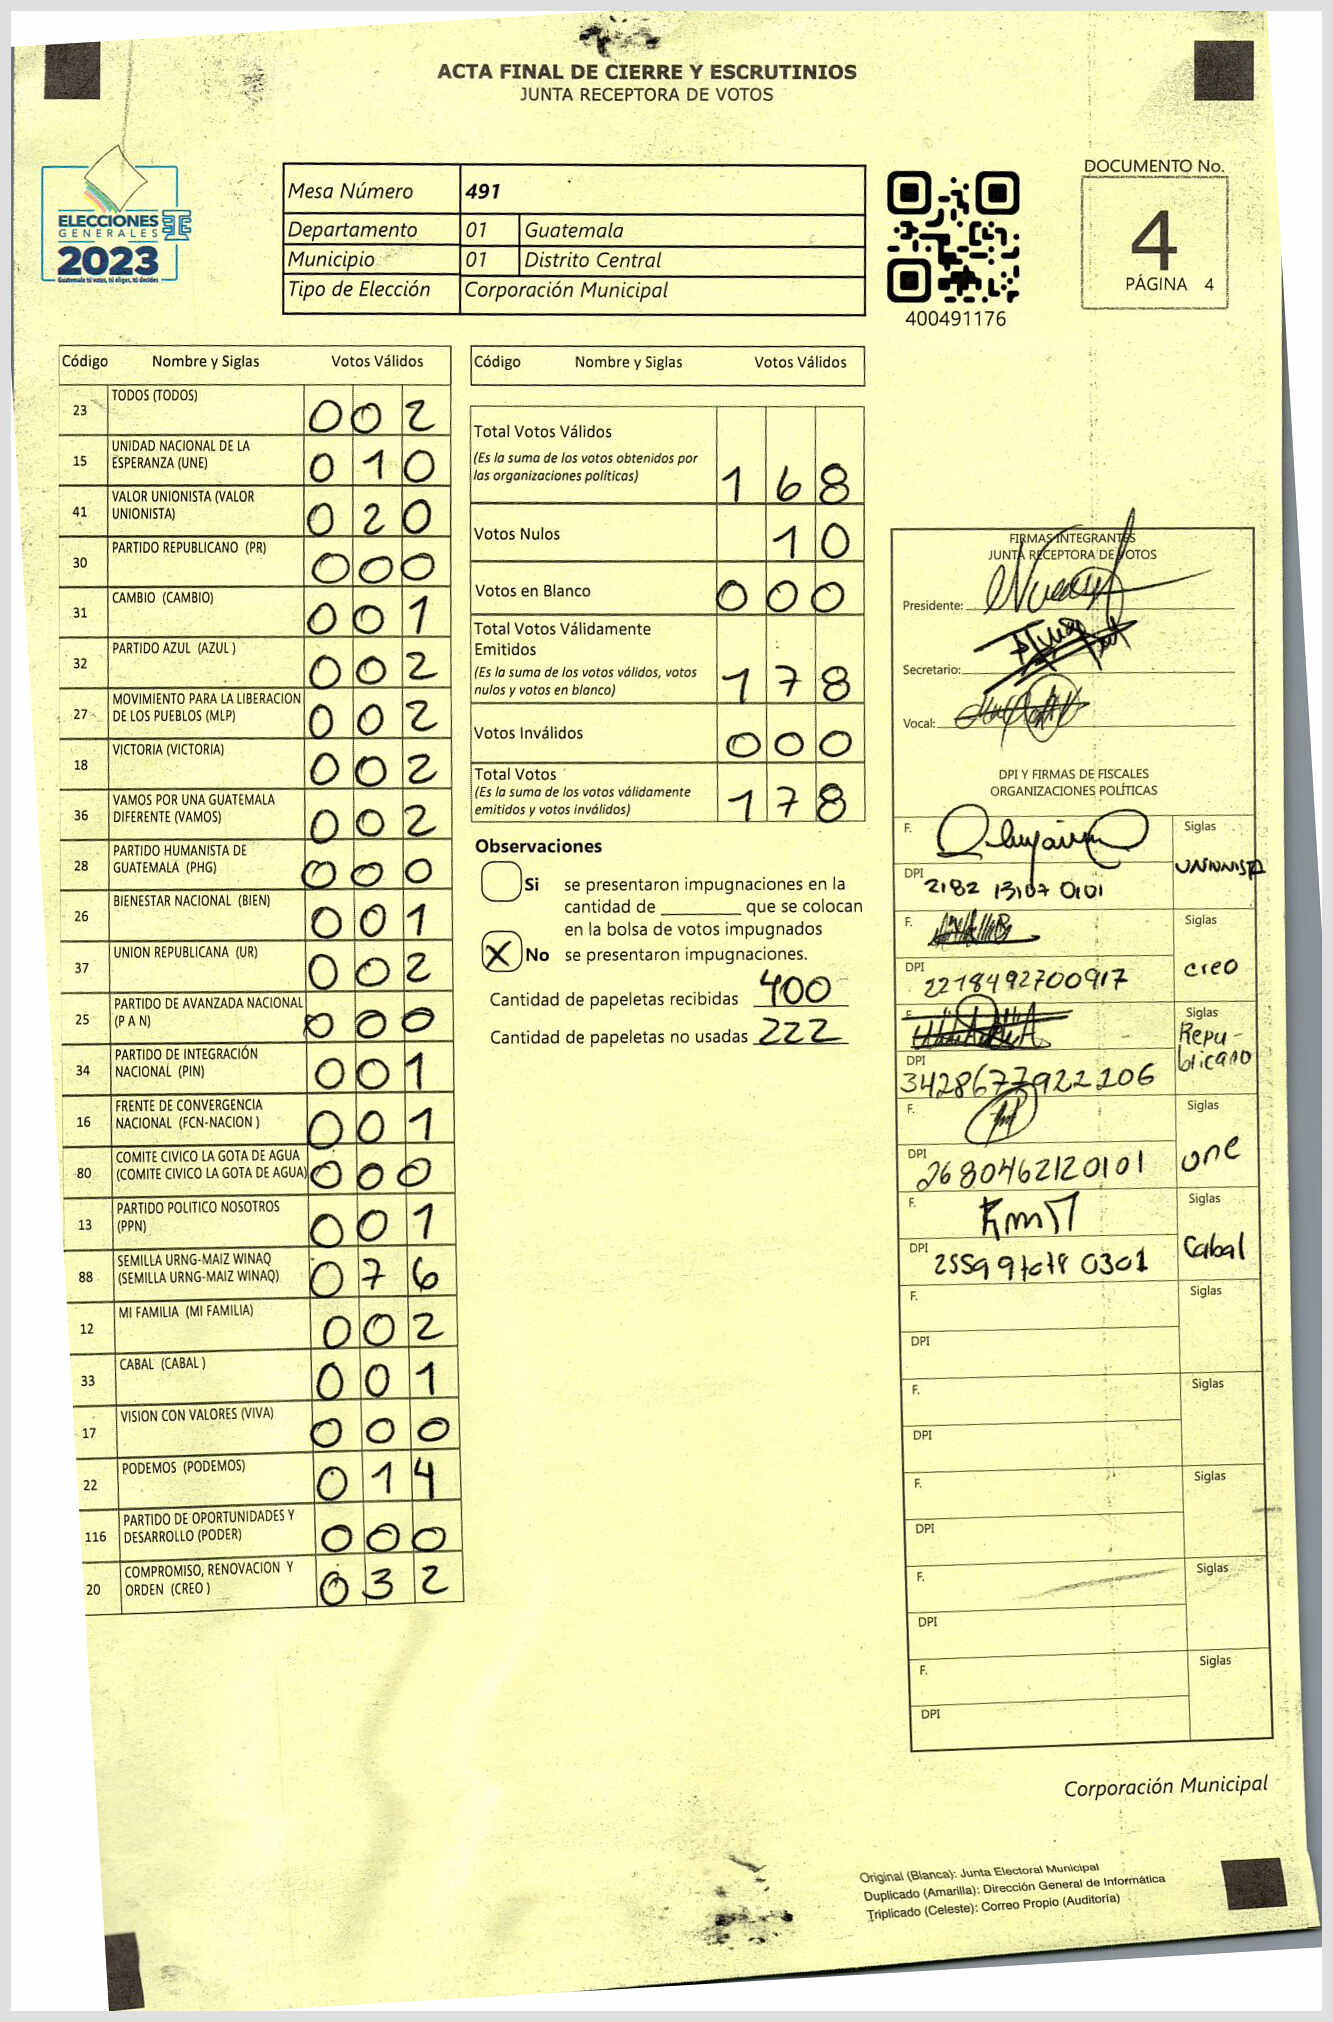 ACTA FINAL DE CIERRE Y ESCRUTINIOS
JUNTA RECEPTORA DE VOTOS
ELECCIONES
GENERALES
2023
Guatemala tú votas, tú eliges, tú decides
Mesa Número 491
Departamento 01 Guatemala
Municipio 01 Distrito Central
Tipo de Elección Corporación Municipal
400491176
DOCUMENTO No.
4
PÁGINA 4
Código Nombre y Siglas Votos Válidos
23 TODOS (TODOS) 002
15 UNIDAD NACIONAL DE LA
ESPERANZA (UNE) 010
41 VALOR UNIONISTA (VALOR
UNIONISTA) 020
30 PARTIDO REPUBLICANO (PR) 000
31 CAMBIO (CAMBIO) 001
32 PARTIDO AZUL (AZUL ) 002
27 MOVIMIENTO PARA LA LIBERACION
DE LOS PUEBLOS (MLP) 002
18 VICTORIA (VICTORIA) 002
36 VAMOS POR UNA GUATEMALA
DIFERENTE (VAMOS) 002
28 PARTIDO HUMANISTA DE
GUATEMALA (PHG) 000
26 BIENESTAR NACIONAL (BIEN) 001
37 UNION REPUBLICANA (UR) 002
25 PARTIDO DE AVANZADA NACIONAL
(P A N) 000
34 PARTIDO DE INTEGRACIÓN
NACIONAL (PIN) 001
16 FRENTE DE CONVERGENCIA
NACIONAL (FCN-NACION ) 001
80 COMITE CIVICO LA GOTA DE AGUA
(COMITE CIVICO LA GOTA DE AGUA) 000
13 PARTIDO POLITICO NOSOTROS
(PPN) 001
88 SEMILLA URNG-MAIZ WINAQ
(SEMILLA URNG-MAIZ WINAQ) 076
12 MI FAMILIA (MI FAMILIA) 002
33 CABAL (CABAL ) 001
17 VISION CON VALORES (VIVA) 000
22 PODEMOS (PODEMOS) 014
116 PARTIDO DE OPORTUNIDADES Y
DESARROLLO (PODER) 000
20 COMPROMISO, RENOVACION Y
ORDEN (CREO ) 032
Código Nombre y Siglas Votos Válidos
Total Votos Válidos
(Es la suma de los votos obtenidos por
las organizaciones políticas) 168
Votos Nulos 10
Votos en Blanco 000
Total Votos Válidamente
Emitidos
(Es la suma de los votos válidos, votos
nulos y votos en blanco) 178
Votos Inválidos 000
Total Votos
(Es la suma de los votos válidamente
emitidos y votos inválidos) 178
Observaciones
Si se presentaron impugnaciones en la
cantidad de ________ que se colocan
en la bolsa de votos impugnados
X No se presentaron impugnaciones.
Cantidad de papeletas recibidas 400
Cantidad de papeletas no usadas 222
FIRMAS INTEGRANTES
JUNTA RECEPTORA DE VOTOS
Presidente:
Secretario:
Vocal:
DPI Y FIRMAS DE FISCALES
ORGANIZACIONES POLÍTICAS
F. Siglas
UNIONISTA
DPI 2182 13107 0101
F. Siglas
creo
DPI 2218492700917
F. Siglas
Repu-
blicano
DPI 3428677922106
F. Siglas
une
DPI 2680462120101
F. Siglas
Cabal
DPI
F. Siglas
DPI
F. Siglas
DPI
F. Siglas
DPI
F. Siglas
DPI
F. Siglas
DPI
Corporación Municipal
Original (Blanca): Junta Electoral Municipal
Duplicado (Amarilla): Dirección General de Informática
Triplicado (Celeste): Correo Propio (Auditoría)